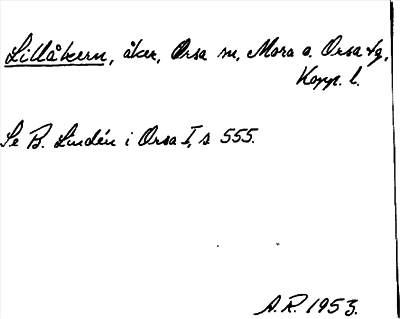 Lillåkern, åker, Orsa sn, Mora o. Orsa tg,
Kopp. l.
Se B. Lindén i Orsa I, s 555.
A.R. 1953.